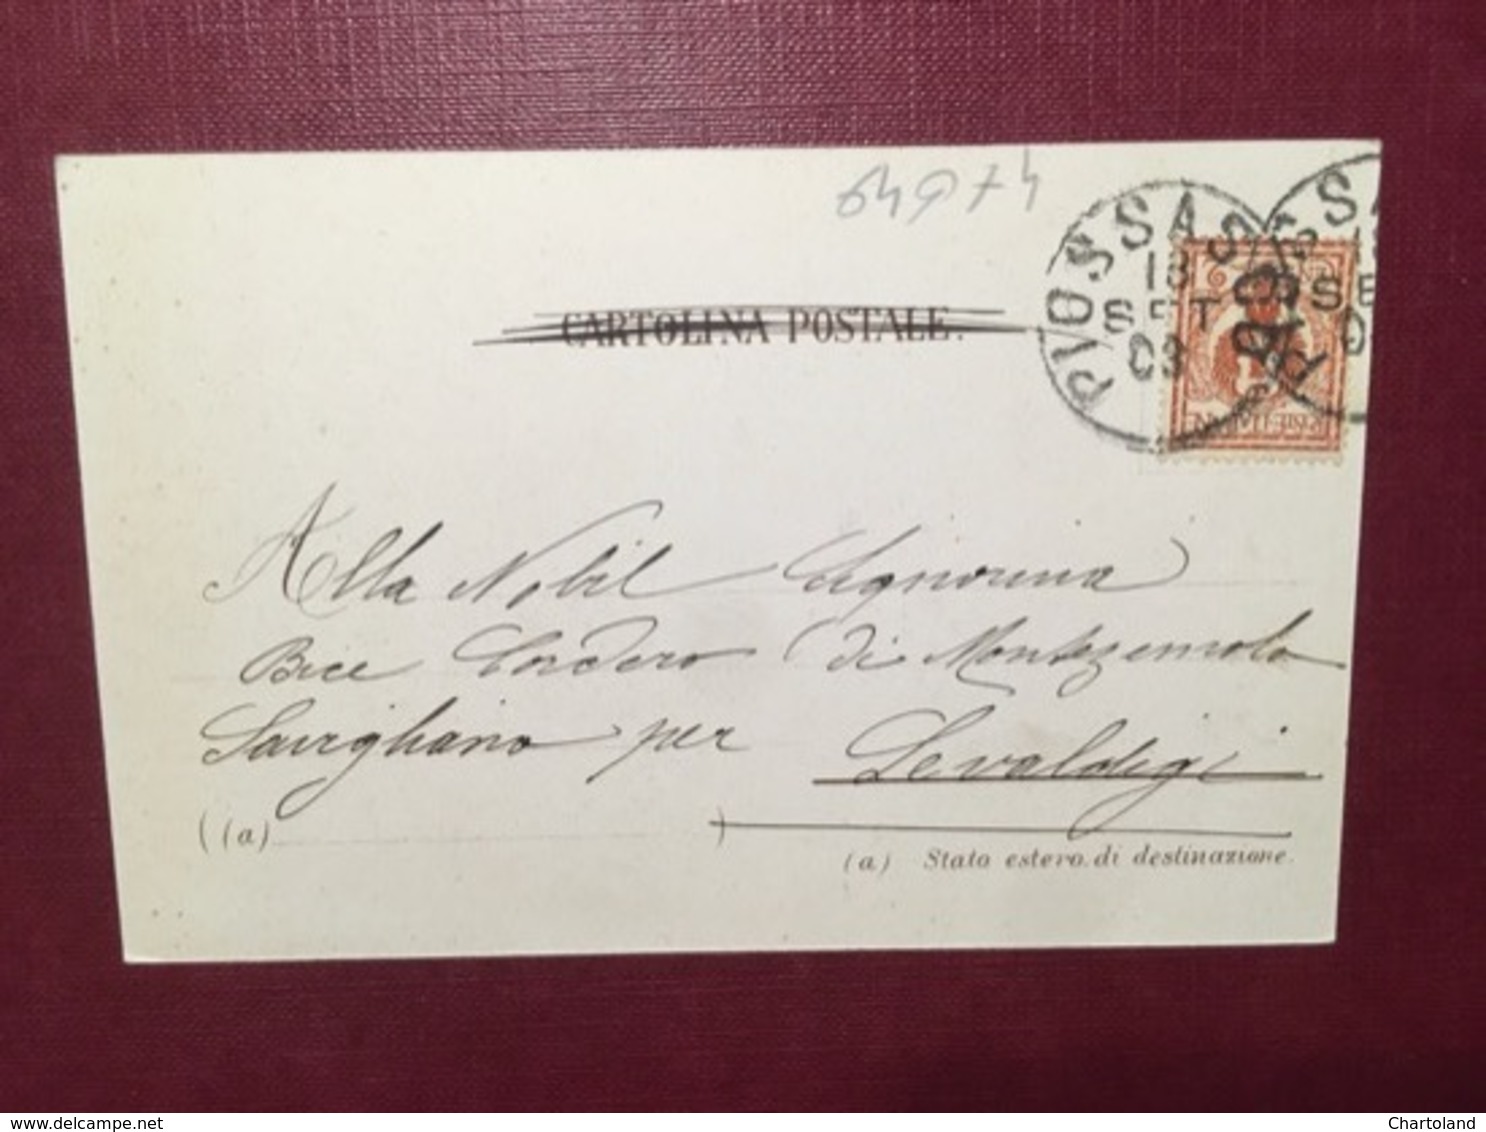 64974
PIOSSASCO
18
SET
03
CARTOLINA POSTALE.
POSTE ITALIANE
Alla Nobil Signorina
Bice Cordero di Montezemolo
Savigliano per Levaldigi
( (a) )
(a) Stato estero di destinazione.
delcampe.net
Chartoland